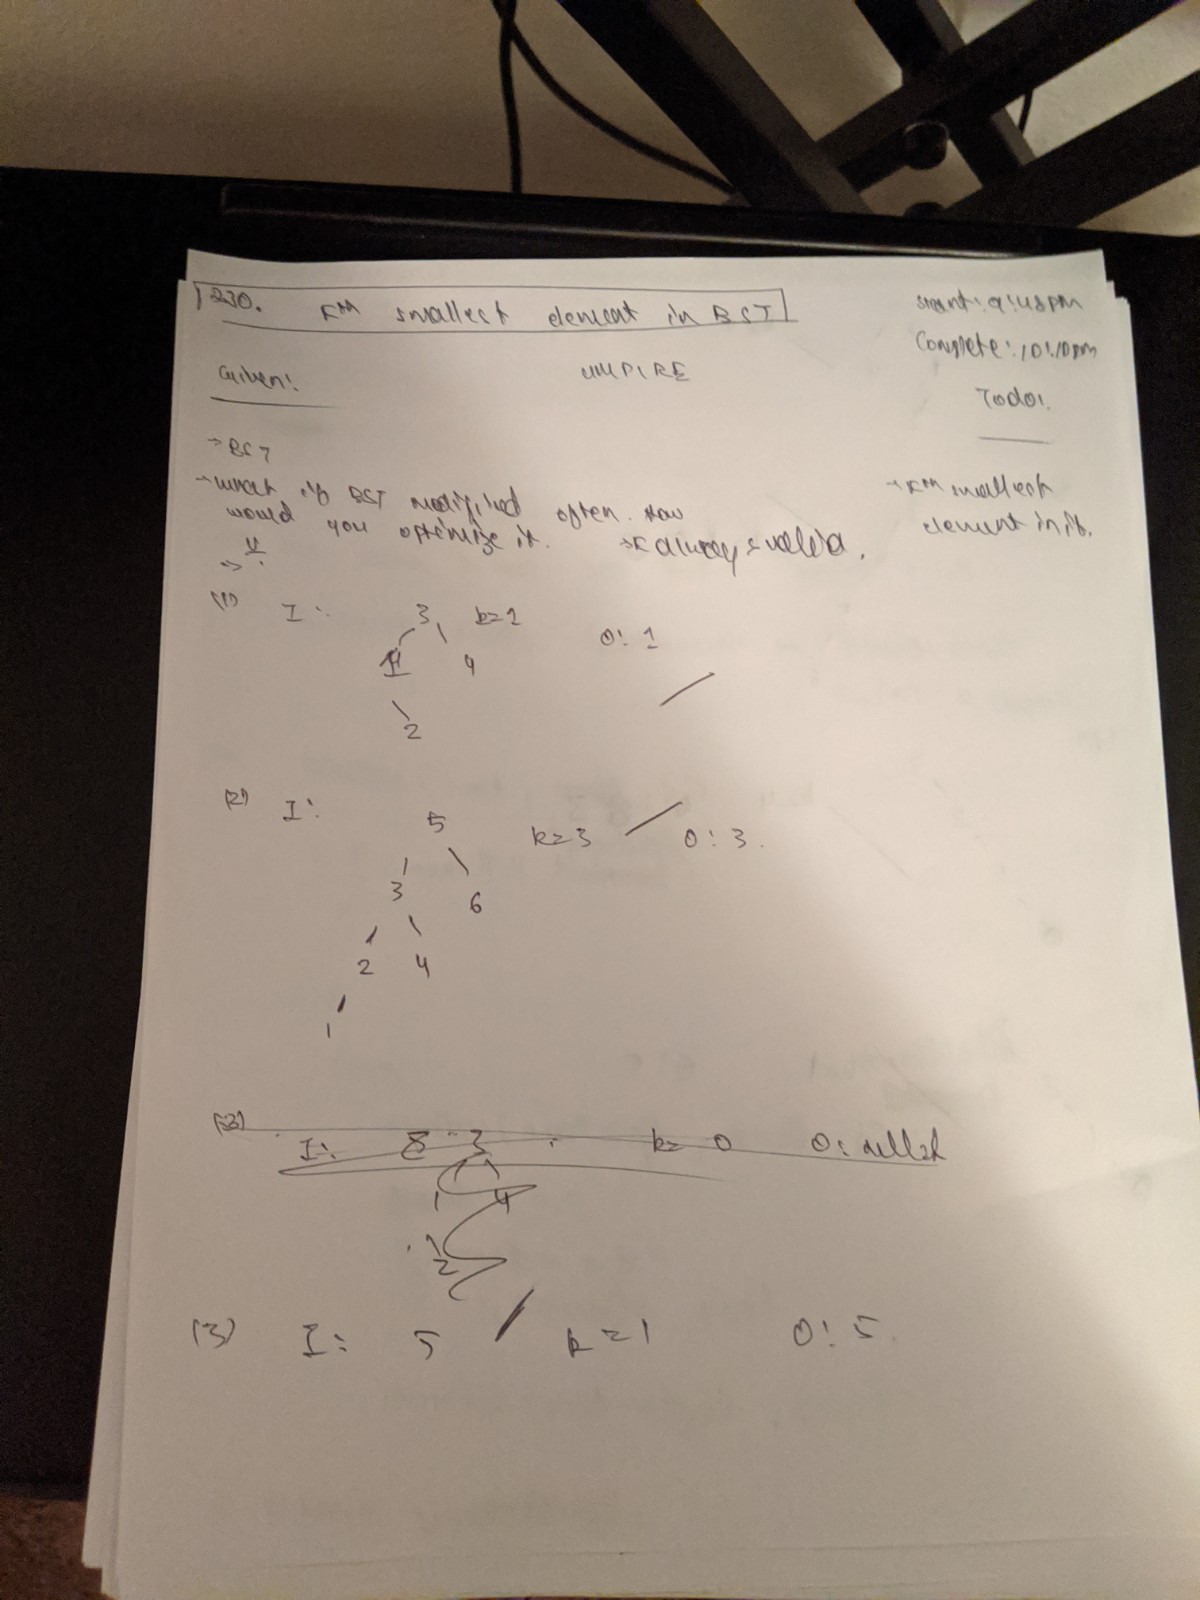 230. Kth smallest element in BST
Start: 9:48 PM
Complete: 10:10pm
Given:
UMPIRE
Todo:
→ BST
→ what if BST modified often. How
would you optimize it.
→ K always valid.
→ Kth smallest
element in it.
→ U:
(1) I: 3 k=1 O: 1
1 4
2
(2) I: 5 k=3 O: 3.
3 6
2 4
1
(3)
I: 3 k= 0
1 4
2
(3) I: 5 k=1 O: 5.